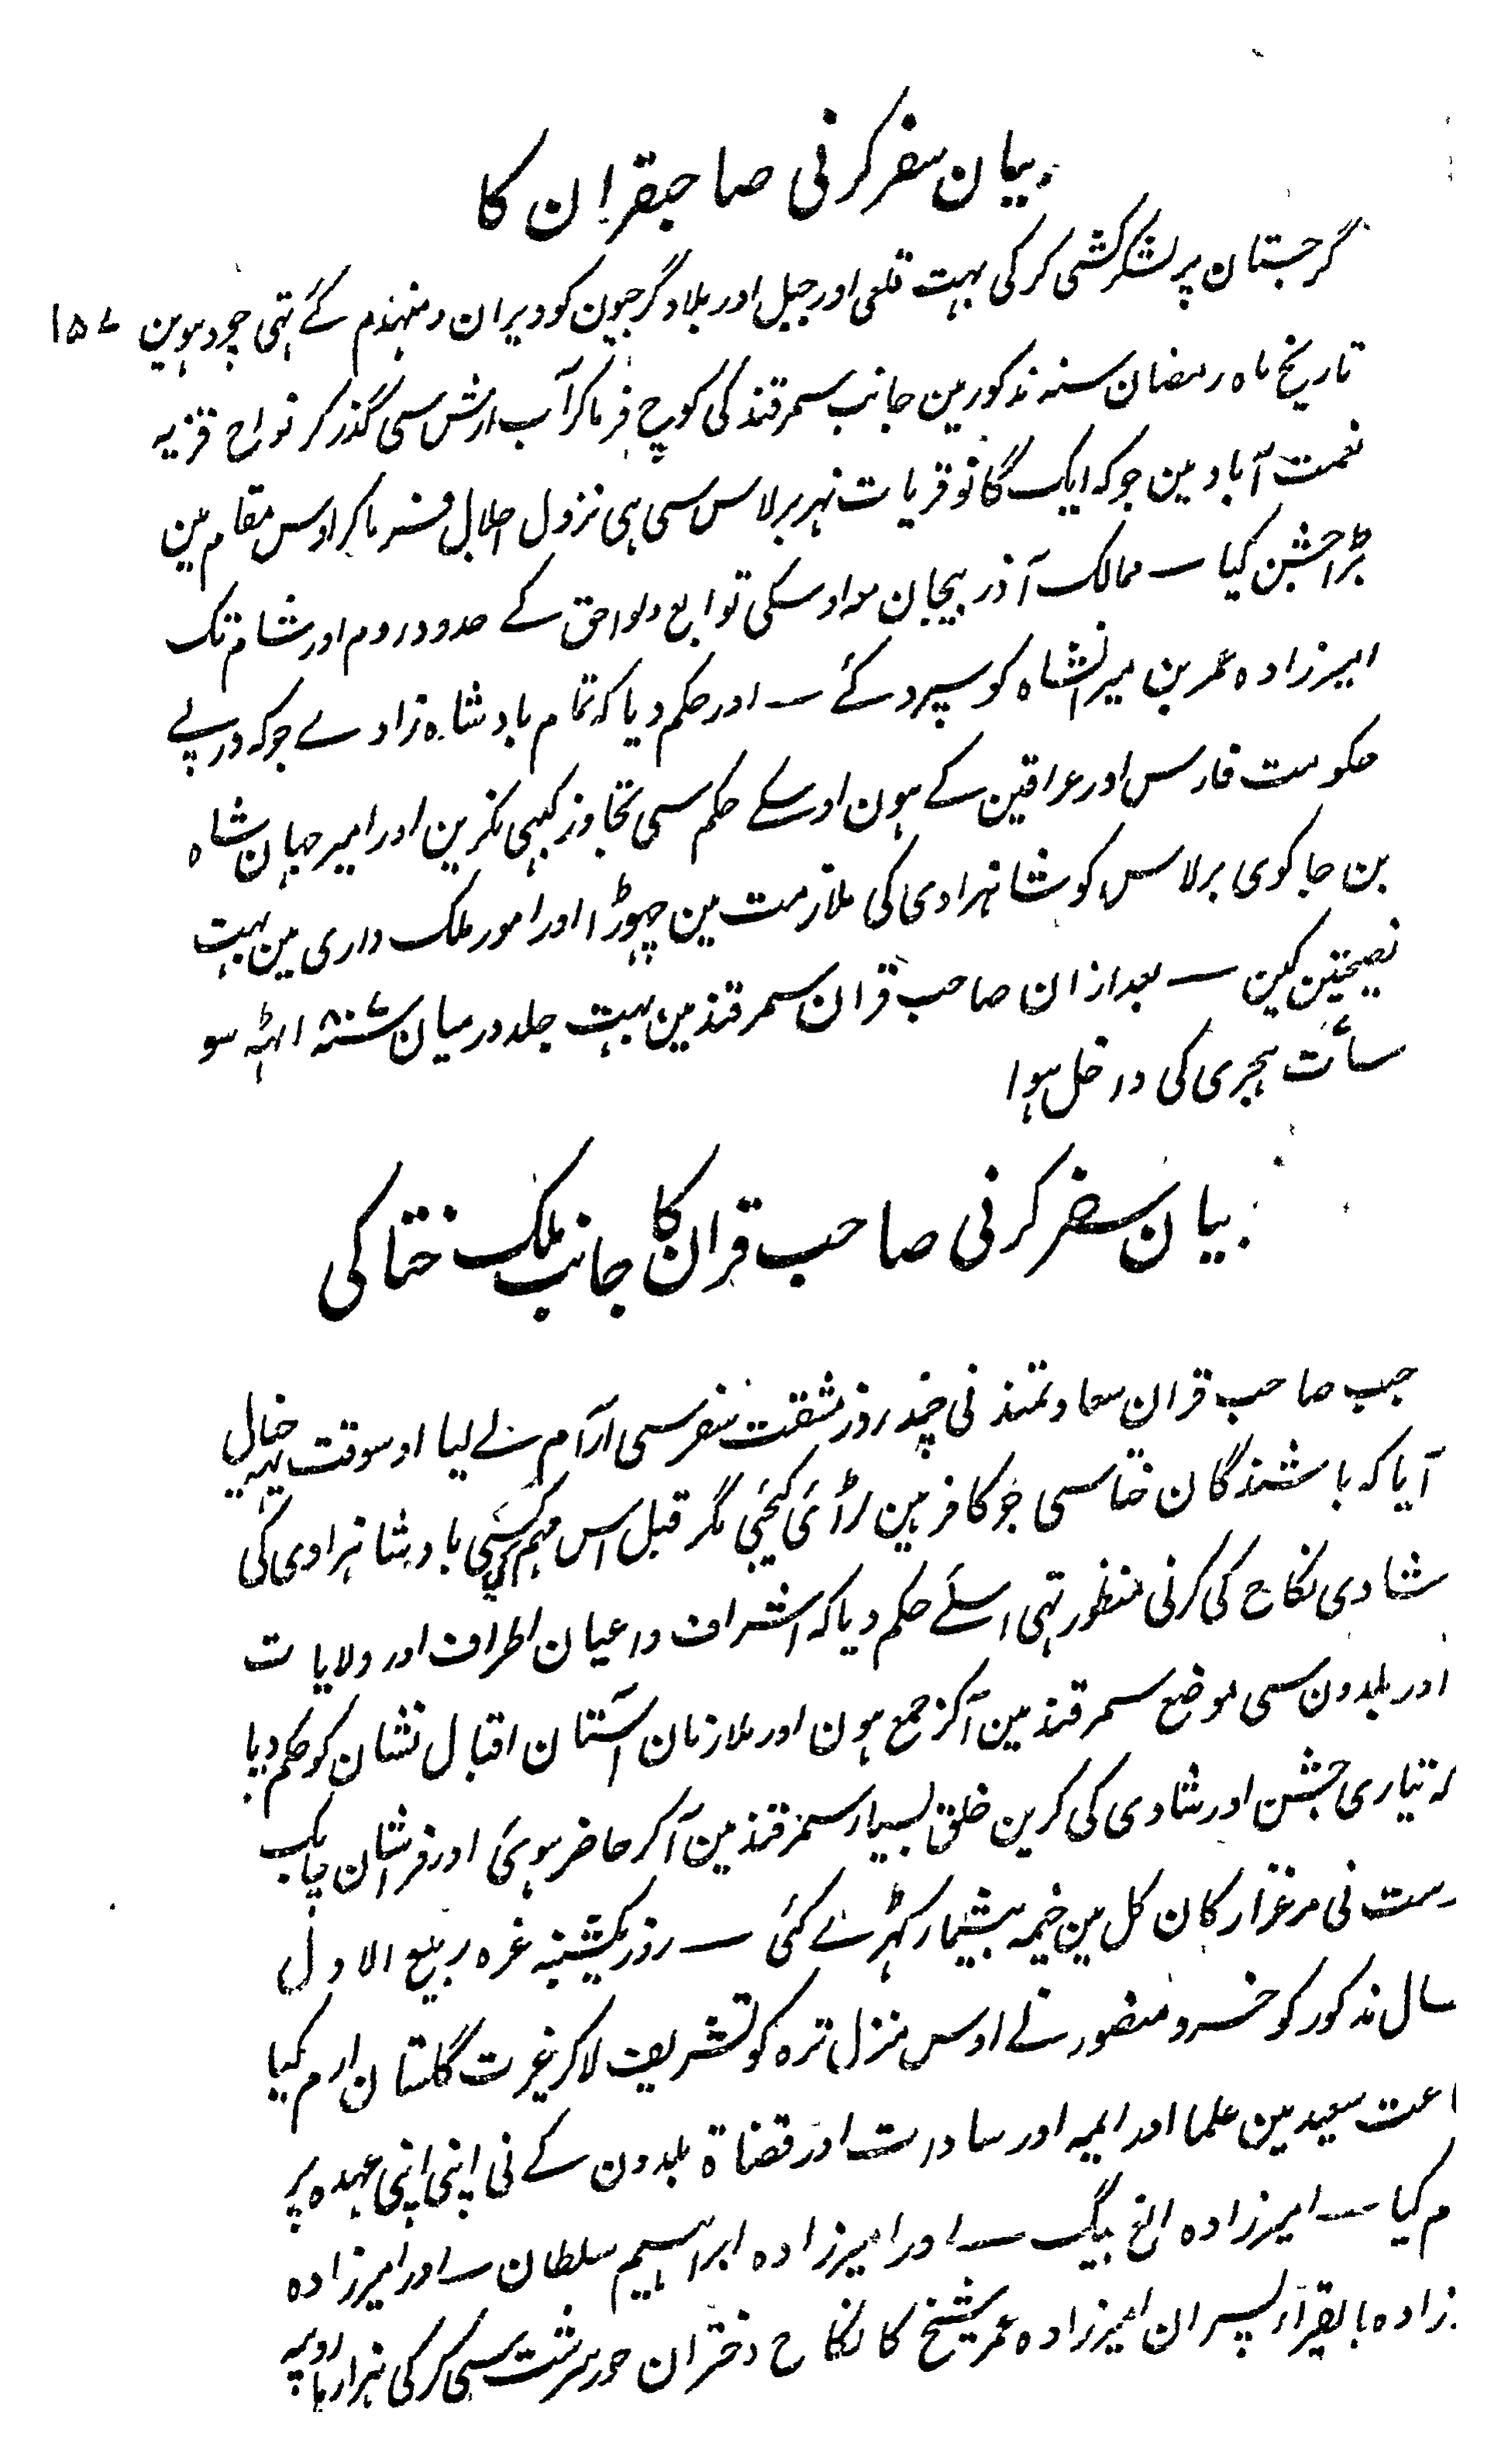 بیان سفر کرنی صاحبقران کا
گرجستان پر لشکر کشی کرکی بہت قلعی اور جبل اور بلاد گرجیون کو دیران و منہذم کئے تہی چودہوین ۱۵۷
تاریخ ماہ رمضان سنہ مذکور مین جانب سمرقند کی کوچ فرماکر آب ارش سی گذر کر نواح قزیہ
نعمت آباد مین جو کہ ایک گانو قریات نہر برلاس سی ہی نزول اجلال فرماکر اوس مقام مین
بڑا جشن کیا ۔ ممالک آذربیجان مہ اوسکی توابع ولواحق کے حدود روم اور شام تک
امیرزادہ عمر بن میرانشاہ کو سپرد کئے ۔ اور حکم دیا کہ تمام بادشاہ زادے جو کہ درپے
حکومت فارس اور عراقین کے ہون اوسکے حکم سی تجاوز کبہی نکرین اور امیر جہان شاہ
بن جاکوی برلاس کو شاہزادی کی ملازمت مین چہوڑا اور امور ملک داری مین بہت
نصیحتین کین ۔ بعد ازان صاحب قران سمرقند مین بہت جلد درمیان سنہ ۸۰۷ اٹہہ سو
سات ہجری کی داخل ہوا
بیان سفر کرنی صاحب قران کا جانب ملک ختا کی
جب صاحب قران سعادتمند نی چند روز مشقت سفر سی آرام لے لیا اوسوقت یہہ خیال
آیا کہ باشندگان ختا سی جو کافر ہین لڑائی کیجئی مگر قبل اس مہم کی کئی بادشاہزادی کی
شادی نکاح کی کرنی منظور تہی اسلئے حکم دیا کہ اشراف و اعیان اطراف اور ولایات
اور بلدون سی موضع سمرقند مین آکر جمع ہون اور ملازمان آستان اقبال نشان کو حکم دیا
کہ تیاری جشن اور شادی کی کرین خلق بسیار سمرقند مین آکر حاضر ہوئی اور فراشان چابک
دست نی مرغزار کان کل مین خیمہ بیشمار کہڑے کئی ۔ روز یکشنبہ غرہ ربیع الاول
سال مذکور کو خسرو منصور نے اوس منزل ترہ کو تشریف لاکر غیرت گلستان ارم کیا
اعت سعید مین علما اور ایمہ اور سادات اور قضاة بلدون کے نی اپنی اپنی عہدہ پر
م کیا ۔ امیرزادہ الغ بیگ ۔ اور امیرزادہ ابراہیم سلطان ۔ اور امیرزادہ
زادہ بایقراء پسران امیرزادہ عمر شیخ کا نکاح دختران حور سرشت سی کرکی ہزارہا روپیہ